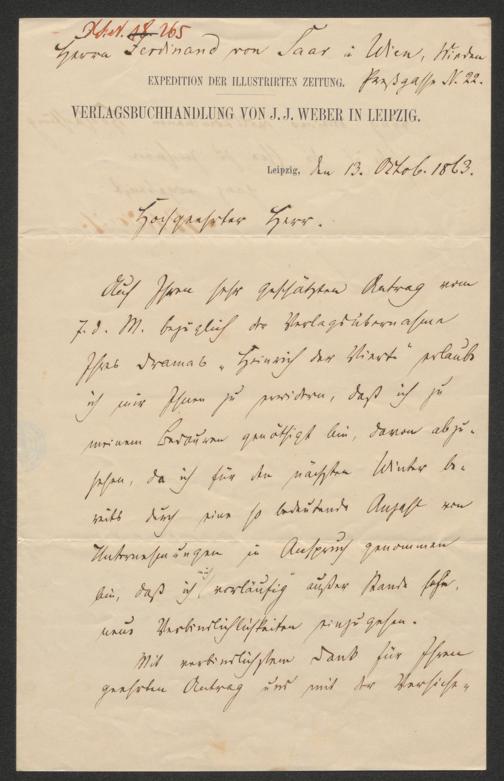 265
Herrn Ferdinand von Saar in Wien, Wieden
EXPEDITION DER ILLUSTRIRTEN ZEITUNG.
N. 22.
VERLAGSBUCHHANDLUNG VON J. J. WEBER IN LEIPZIG.
Leipzig, den 13. Oktob. 1863.
Hochgeehrter Herr.
Auf Ihren sehr geschätzten Antrag vom
7. d. M. bezüglich der Verlagsübernahme
Ihres Dramas „Heinrich der Vierte“ erlaube
ich mir Ihnen zu erwidern, daß ich zu
meinem Bedauren genöthigt bin, davon abzu-
sehen, da ich für den nächsten Winter be-
reits durch eine so bedeutende Anzahl von
Unternehmungen in Anspruch genommen
bin, daß ich mich vorläufig außer Stande sehe,
neue Verbindlichkeiten einzugehen.
Mit verbindlichstem Dank für Ihren
geehrten Antrag und mit der Versiche-